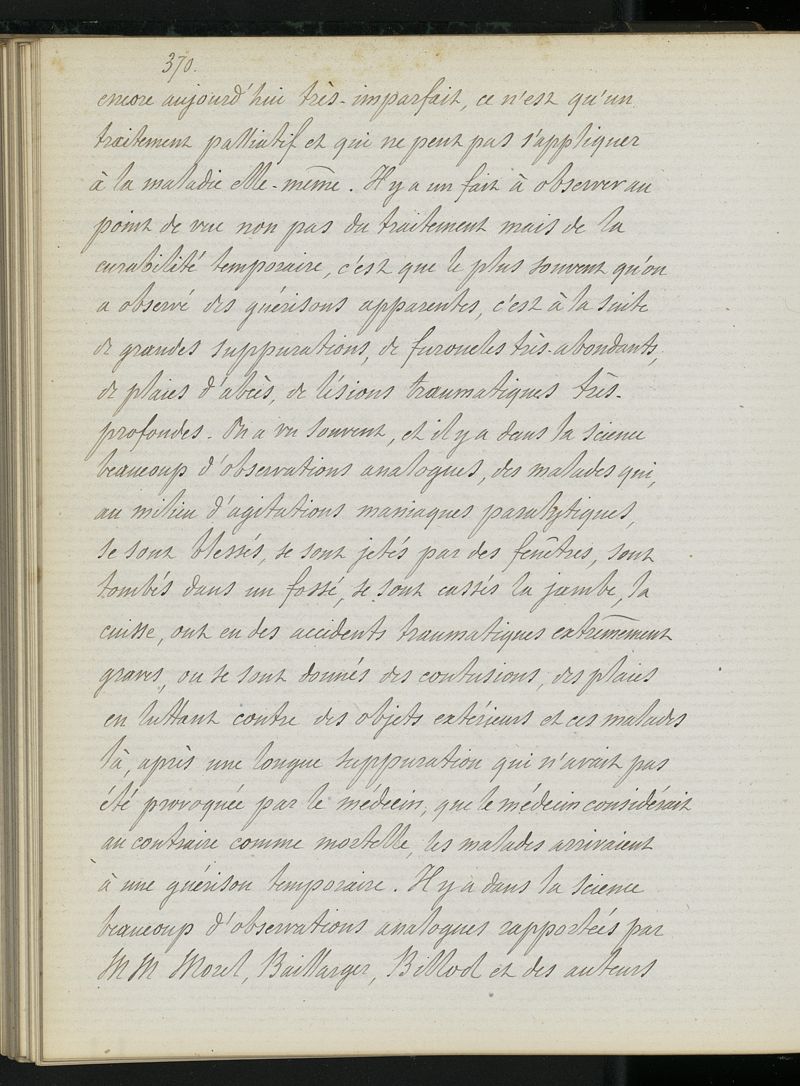 370.
encore aujourd'hui très-imparfait, ce n'est qu'un
traitement palliatif et qui ne peut pas s'appliquer
à la maladie elle-même. Il y a un fait à observer au
point de vue non pas du traitement mais de la
curabilité temporaire, c'est que le plus souvent qu'on
a observé des guérisons apparentes, c'est à la suite
de grandes suppurations, de furoncles très-abondants,
de plaies d'abcès, de lésions traumatiques très-
profondes. On a vu souvent, et il y a dans la science
beaucoup d'observations analogues, des malades qui,
au milieu d'agitations maniaques paralytiques,
se sont blessés, se sont jetés par des fenêtres, sont
tombés dans un fossé, se sont cassés la jambe, la
cuisse, ont eu des accidents traumatiques extrêmement
graves, ou se sont donnés des contusions, des plaies
en luttant contre des objets extérieurs et ces malades
là, après une longue suppuration qui n'avait pas
été provoquée par le médecin, que le médecin considérait
au contraire comme mortelle, les malades arrivaient
à une guérison temporaire. Il y a dans la science
beaucoup d'observations analogues rapportées par
MM Morel, Baillarger, Billod et des auteurs